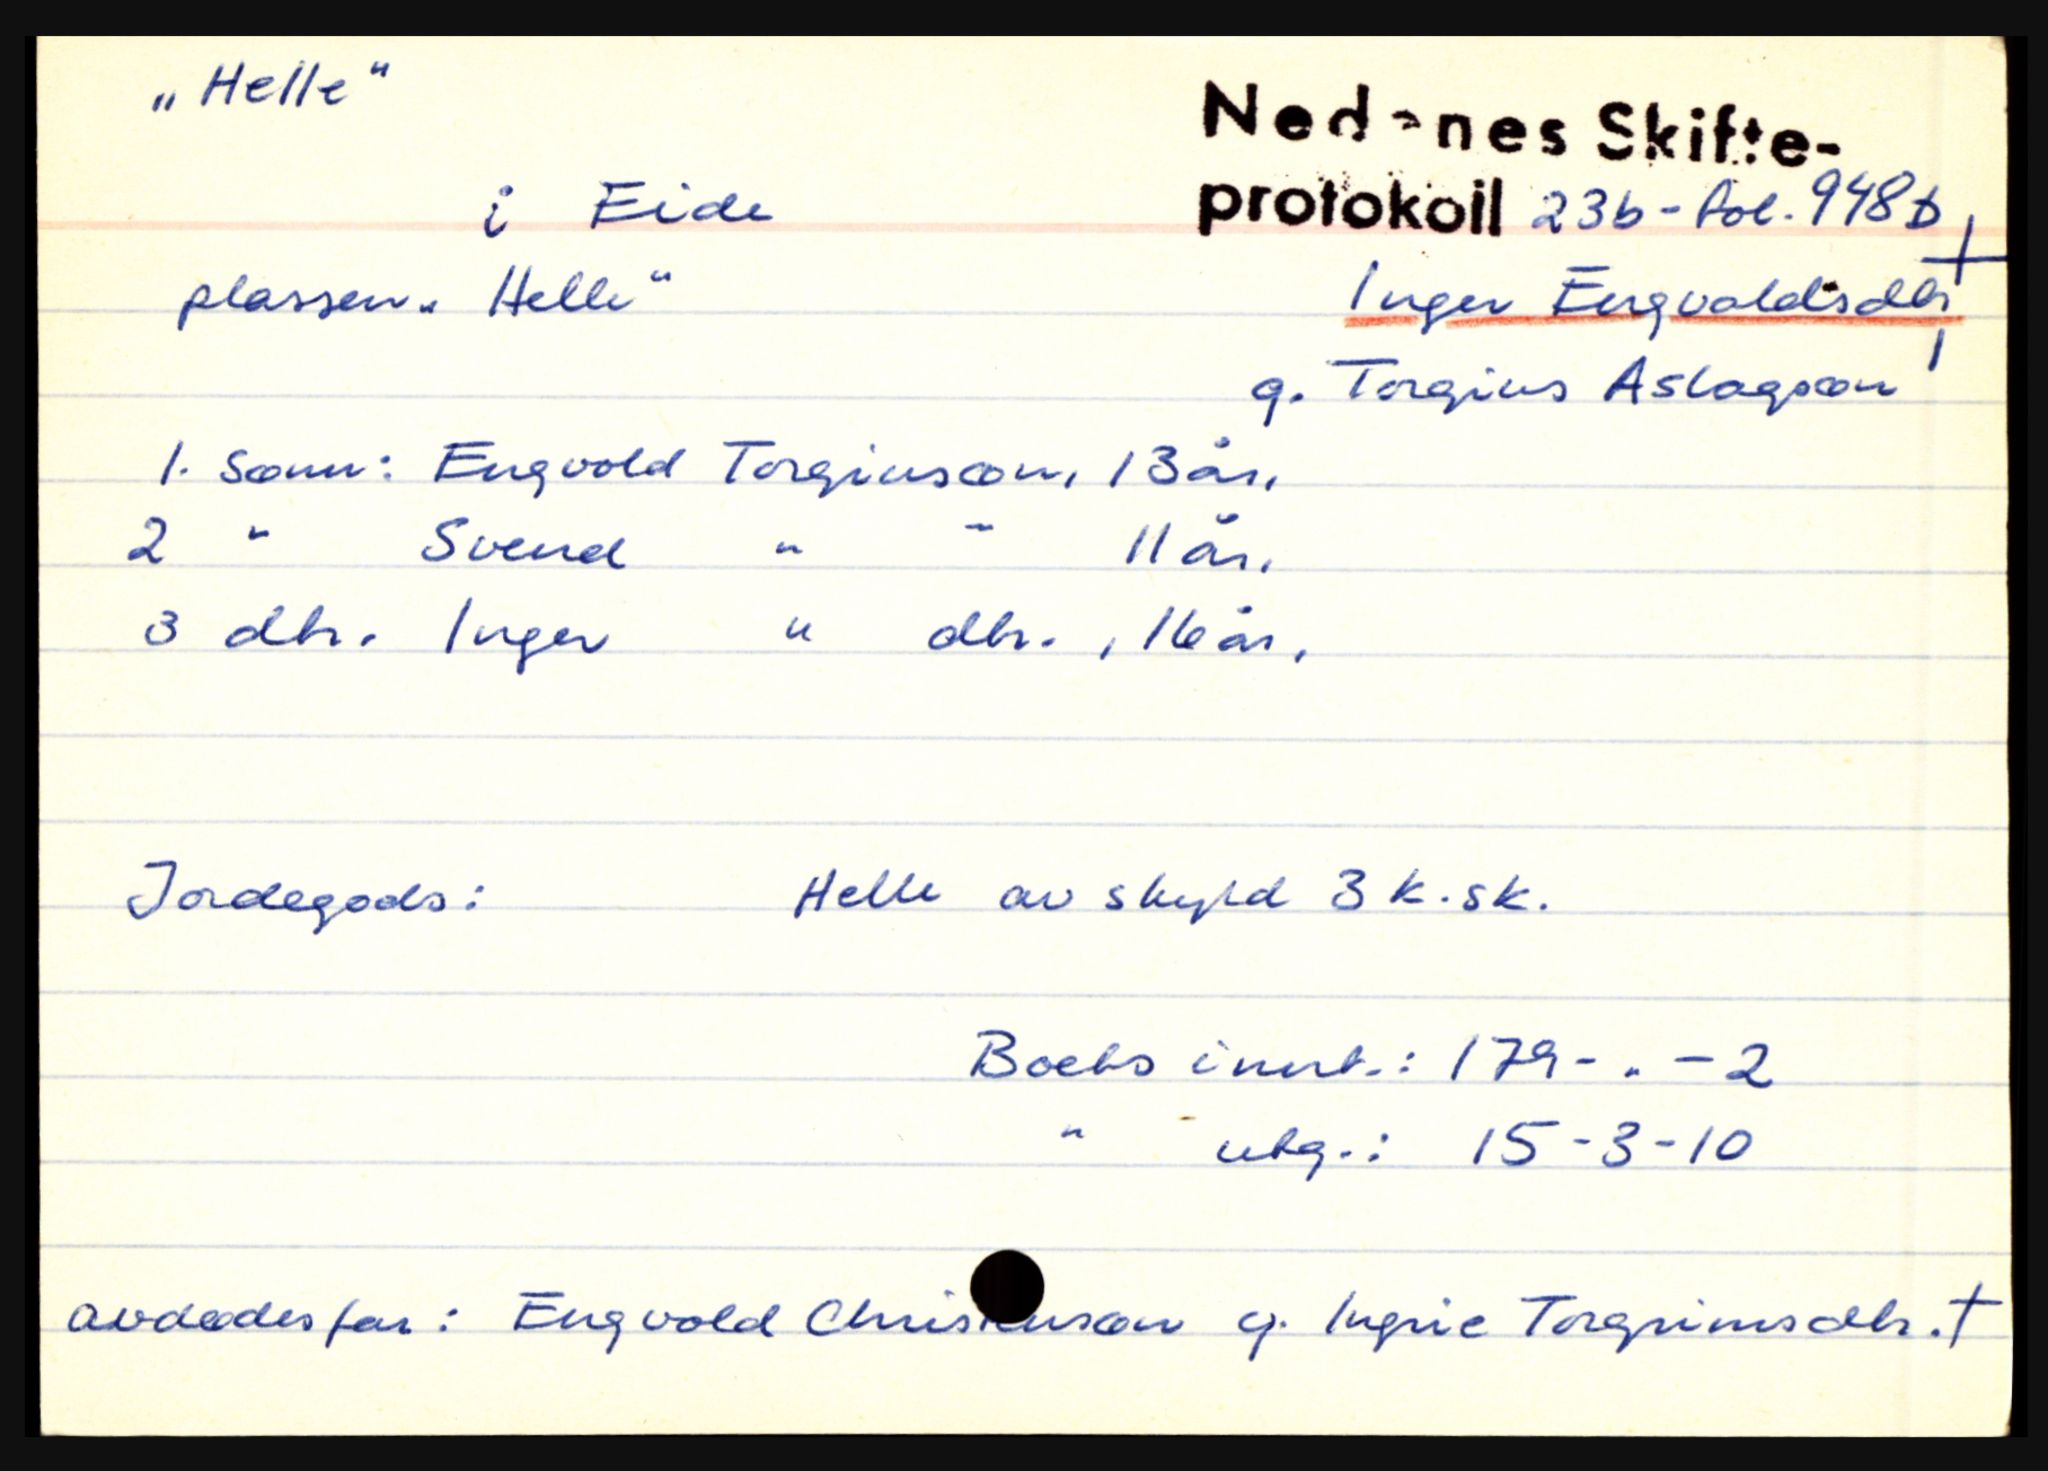 „Helle"
Nedenes Skifte-
i Eide
protokoll 23b - fol. 948b
plassen „Helle"
Inger Engvoldsdtr †
g. Torgius Aslagsøn
1. sønn: Engvold Torgiussøn, 13 år,
2 " Svend " " 11 år,
3 dtr. Inger " dtr. , 16 år,
Jordegods: Helle av skyld 3 k.sk.
Boets innt.: 179 - " - 2
" utg.: 15 - 3 - 10
avdødes far: Engvold Christensøn g. Ingrie Torgrimsdtr. †